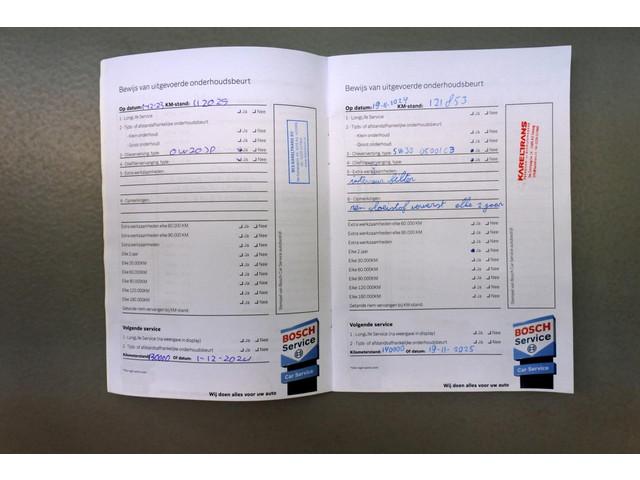 Bewijs van uitgevoerde onderhoudsbeurt
Op datum: 1-12-23 KM-stand:
1 - LongLife Service Ja Nee
2 - Tijds- of afstandsafhankelijke onderhoudsbeurt
- Klein onderhoud Ja Nee
- Groot onderhoud Ja Nee
3 - Olieverversing, type: Ja Nee
4 - Oliefiltervervanging, type: Ja Nee
5 - Extra werkzaamheden:
6 - Opmerkingen:
Extra werkzaamheden elke 60.000 KM Ja Nee
Extra werkzaamheden elke 90.000 KM Ja Nee
Extra werkzaamheden Ja Nee
Elke 2 jaar Ja Nee
Elke 30.000KM Ja Nee
Elke 60.000KM Ja Nee
Elke 90.000KM Ja Nee
Elke 120.000KM Ja Nee
Elke 180.000KM Ja Nee
Getande riem vervangen bij KM-stand:
Stempel van Bosch Car Service autobedrijf:
Volgende service
1 - LongLife Service (na weergave in display) Ja Nee
2 - Tijds- of afstandsafhankelijke onderhoudsbeurt) Ja Nee
Kilometerstand: Of datum: 1-12-2024
BOSCH
Service
Car Service
Wij doen alles voor uw auto
Bewijs van uitgevoerde onderhoudsbeurt
Op datum: 19-11-2024 KM-stand: 121853
1 - LongLife Service Ja Nee
2 - Tijds- of afstandsafhankelijke onderhoudsbeurt
- Klein onderhoud Ja Nee
- Groot onderhoud Ja Nee
3 - Olieverversing, type: 5W30 Ja Nee
4 - Oliefiltervervanging, type: Ja Nee
5 - Extra werkzaamheden:
interieur filter
6 - Opmerkingen:
remvloeistof ververst elke 2 jaar
Extra werkzaamheden elke 60.000 KM Ja Nee
Extra werkzaamheden elke 90.000 KM Ja Nee
Extra werkzaamheden Ja Nee
Elke 2 jaar Ja Nee
Elke 30.000KM Ja Nee
Elke 60.000KM Ja Nee
Elke 90.000KM Ja Nee
Elke 120.000KM Ja Nee
Elke 180.000KM Ja Nee
Getande riem vervangen bij KM-stand:
KARELTRANS
Stempel van Bosch Car Service autobedrijf:
Volgende service
1 - LongLife Service (na weergave in display) Ja Nee
2 - Tijds- of afstandsafhankelijke onderhoudsbeurt) Ja Nee
Kilometerstand: 140000 Of datum: 19-11-2025
BOSCH
Service
Car Service
Wij doen alles voor uw auto